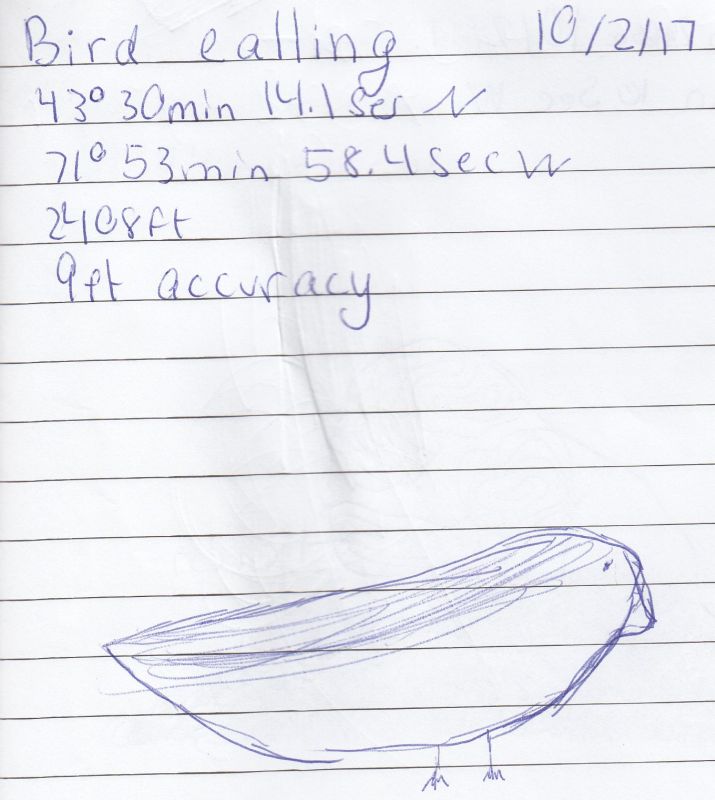 Bird calling 10/2/17
43° 30min 14.1 Sec N
71° 53min 58.4 Sec W
2408ft
9ft accuracy